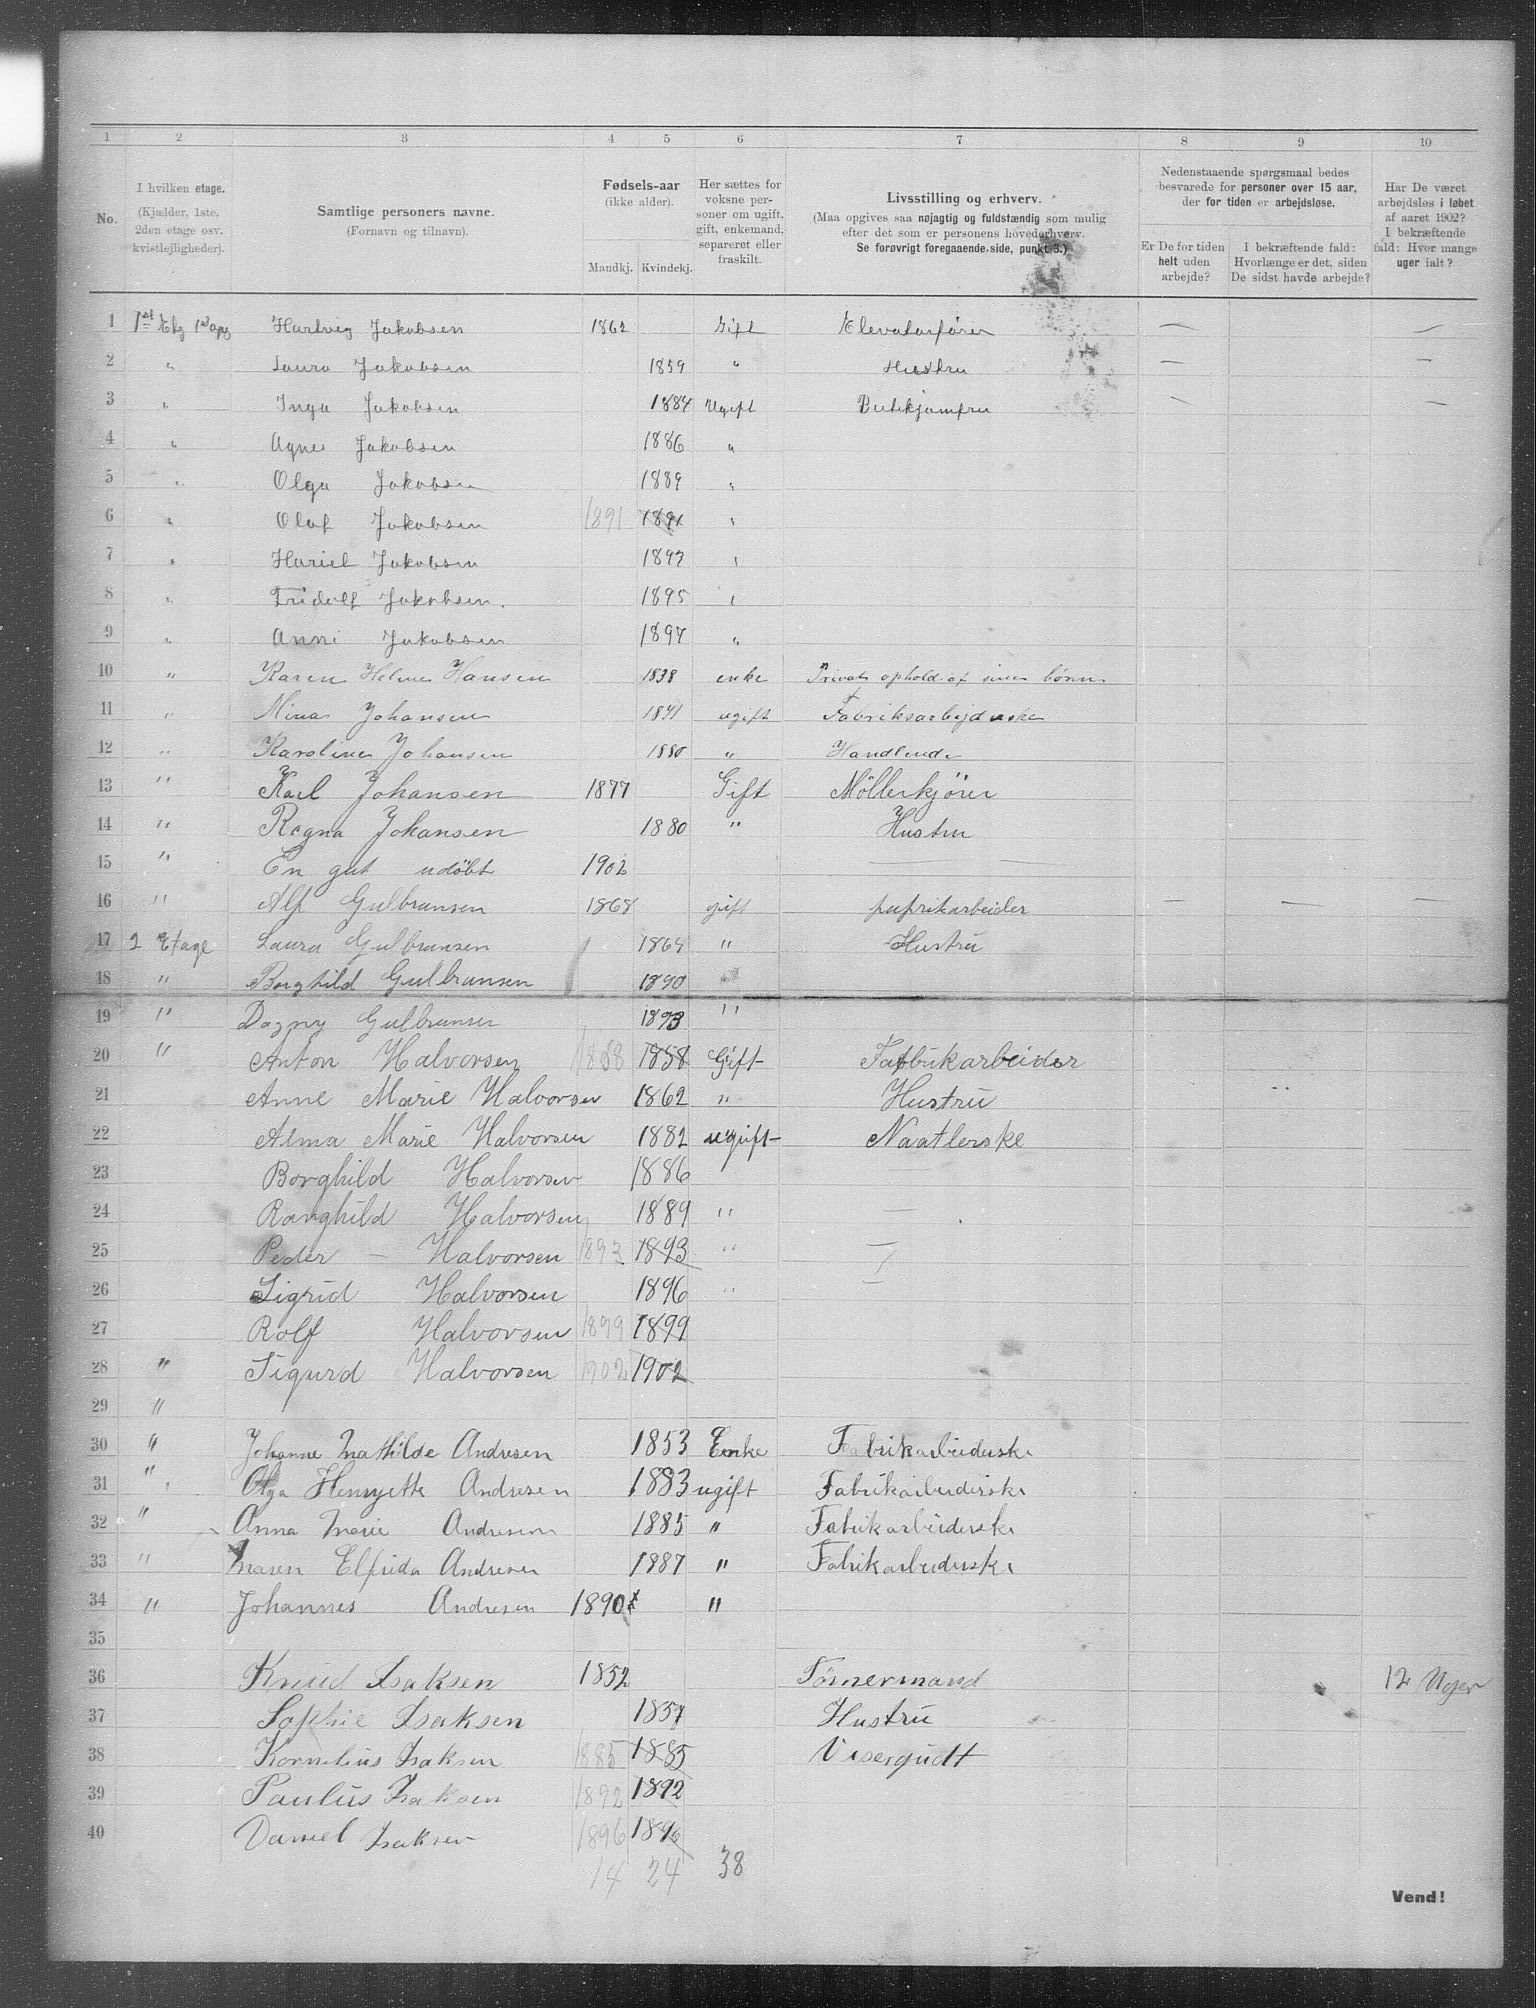 1 2 3 4 5 6 7 8 9 10
No.
I hvilken etage.
(Kjælder, 1ste,
2den etage osv.
kvistlejligheder).
Samtlige personers navne.
(Fornavn og tilnavn).
Fødsels-aar
(ikke alder).
Mandkj. Kvindekj.
Her sættes for
voksne per-
soner om ugift,
gift, enkemand,
separeret eller
fraskilt.
Livsstilling og erhverv.
(Maa opgives saa nøjagtig og fuldstændig som mulig
efter det som er personens hovederhverv.
Se forøvrigt foregaaende side, punkt 3.)
Nedenstaaende spørgsmaal bedes
besvarede for personer over 15 aar,
der for tiden er arbejdsløse.
Er De for tiden
helt uden
arbejde?
I bekræftende fald:
Hvorlænge er det, siden
De sidst havde arbejde?
Har De været
arbejdsløs i løbet
af aaret 1902?
I bekræftende
fald: Hvor mange
uger ialt?
1 1st Etg Hartvig Jakobsen 1862 Gift Elevatorfører — —
2 " Laura Jakobsen 1859 " Hustru — —
3 " Inga Jakobsen 1884 Ugift Butikjomfru — —
4 " Agnes Jakobsen 1886 "
5 " Olga Jakobsen 1889 "
6 " Olaf Jakobsen 1891 1891 "
7 " Jakobsen 1893 "
8 " Fridolf Jakobsen. 1895 "
9 " Anni Jakobsen 1897 "
10 " Karen Heline Hansen 1838 enke Privat ophold af sine børn
11 " Mina Johansen 1841 ugift Fabriksarbejderske
12 " Karoline Johansen 1880 " Handlende
13 " Karl Johansen 1877 Gift Møllerkjører
14 " Ragna Johansen 1880 " Hustru
15 " En gut udöbt 1902 — —
16 " Alf Gulbransen 1868 gift papirikarbeider — — —
17 2 Etage Laura Gulbransen 1864 " Hustru
18 " Borghild Gulbransen 1890 "
19 " Dagny Gulbransen 1893 "
20 " Anton Halvorsen 1858 1858 Gift Fabbrikarbeider
21 Anne Marie Halvorsen 1862 " Hustru
22 Alma Marie Halvorsen 1882 ugift Naatlerske
23 Borghild Halvorsen 1886
24 Ranghild Halvorsen 1889 " —
25 Peder — Halvorsen 1893. 1893 " —
26 Sigrid Halvorsen 1896 " —
27 Rolf Halvorsen 1899 1899
28 " Sigurd Halvorsen 1902 1902
29 "
30 " Johanne Mathilde Andresen 1853 Enke Fabrikarbeiderske
31 " Olga Henryette Andresen 1883 ugift Fabrikarbeiderske
32 " Anna Marie Andresen 1885 " Fabrikarbeiderske
33 " Maren Elfrida Andresen 1887 " Fabrikarbeiderske
34 " Johannes Andresen 1890 "
35
36 Knud Isaksen 1852 Tømermand 12 Uger
37 Sophie Isaksen 1857 Hustru
38 Kornelius Isaksen 1885 1885 Visergudt
39 Paulus Isaksen 1892 1892
40 Daniel Isaksen 1896 1896
14 24 38
Vend!